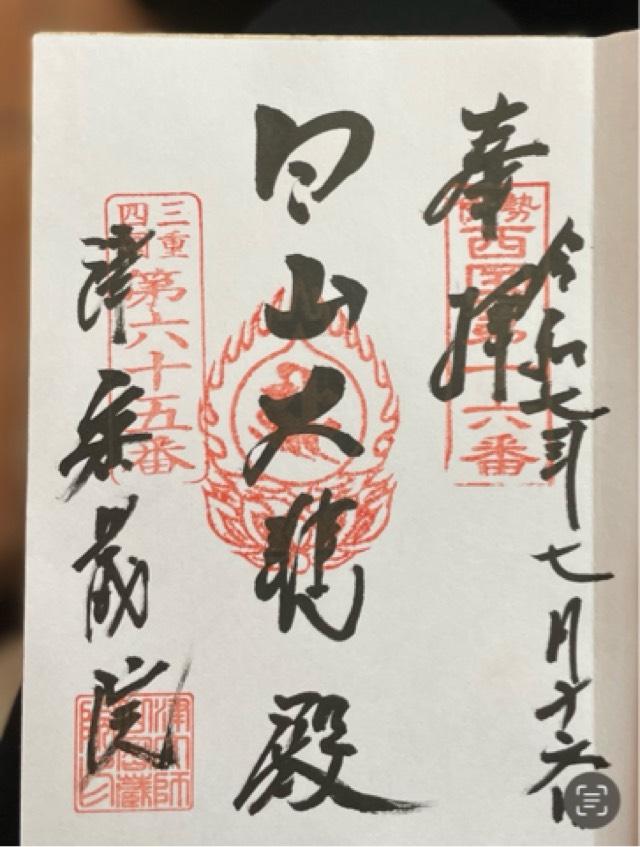 奉拝
伊勢
西国第十六番
令和七年七月十六日
円山大悲殿
三重
四国
第六十五番
津密蔵院